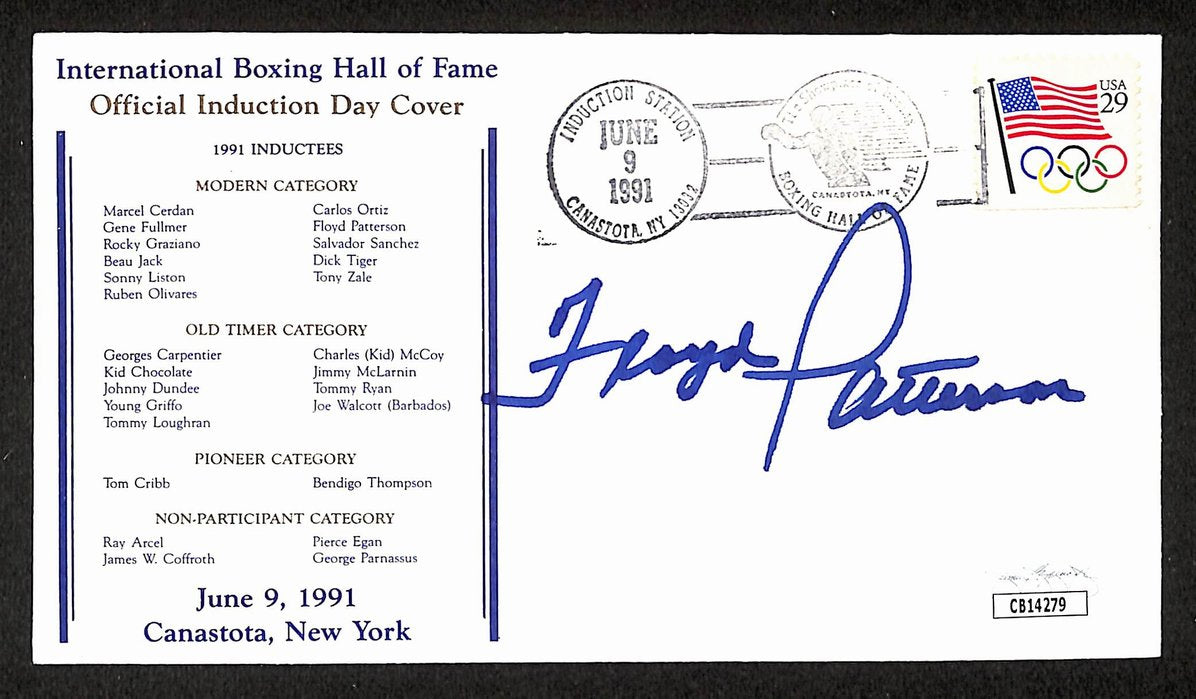 International Boxing Hall of Fame
Official Induction Day Cover
1991 INDUCTEES
MODERN CATEGORY
Marcel Cerdan
Gene Fullmer
Rocky Graziano
Beau Jack
Sonny Liston
Ruben Olivares
Carlos Ortiz
Floyd Patterson
Salvador Sanchez
Dick Tiger
Tony Zale
OLD TIMER CATEGORY
Georges Carpentier
Kid Chocolate
Johnny Dundee
Young Griffo
Tommy Loughran
Charles (Kid) McCoy
Jimmy McLarnin
Tommy Ryan
Joe Walcott (Barbados)
PIONEER CATEGORY
Tom Cribb
Bendigo Thompson
NON-PARTICIPANT CATEGORY
Ray Arcel
James W. Coffroth
Pierce Egan
George Parnassus
June 9, 1991
Canastota, New York
INDUCTION STATION
JUNE
9
1991
CANASTOTA, NY 13032
CANASTOTA, NY
BOXING HALL OF FAME
USA
29
Floyd Patterson
CB14279